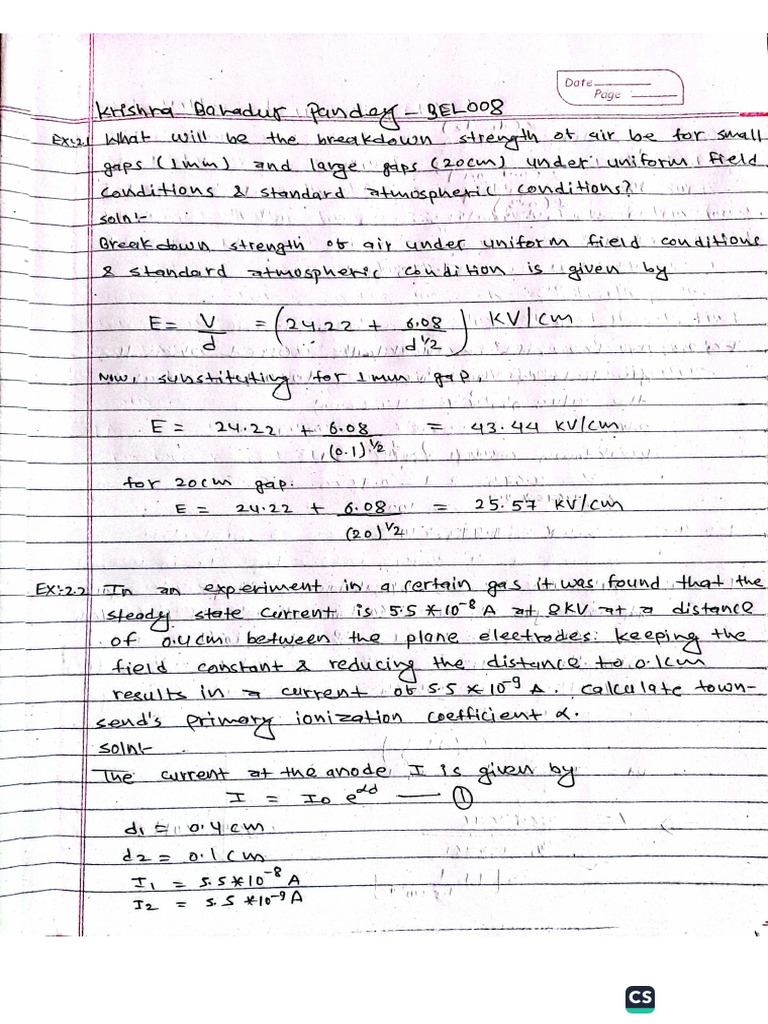 Date
Page
Krishna Bahadur Pandey - BEL008
Ex:2.1 What will be the breakdown strength of air be for small
gaps (1mm) and large gaps (20cm) under uniform field
conditions & standard atmospheric conditions?
soln:-
Breakdown strength of air under uniform field conditions
& standard atmospheric condition is given by
E = V/d = (24.22 + 6.08/d^1/2) KV/cm
Now, substituting for 1mm gap,
E = 24.22 + 6.08/(0.1)^1/2 = 43.44 KV/cm
for 20cm gap.
E = 24.22 + 6.08/(20)^1/2 = 25.57 KV/cm
Ex:2.2 In an experiment in a certain gas it was found that the
steady state current is 5.5*10^-8 A at 8KV at a distance
of 0.4cm between the plane electrodes. keeping the
field constant & reducing the distance to 0.1cm
results in a current of 5.5*10^-9 A. calculate town-
send's primary ionization coefficient α.
soln:-
The current at the anode I is given by
I = I0 e^αd — ①
d1 = 0.4cm
d2 = 0.1cm
I1 = 5.5*10^-8 A
I2 = 5.5*10^-9 A
CS